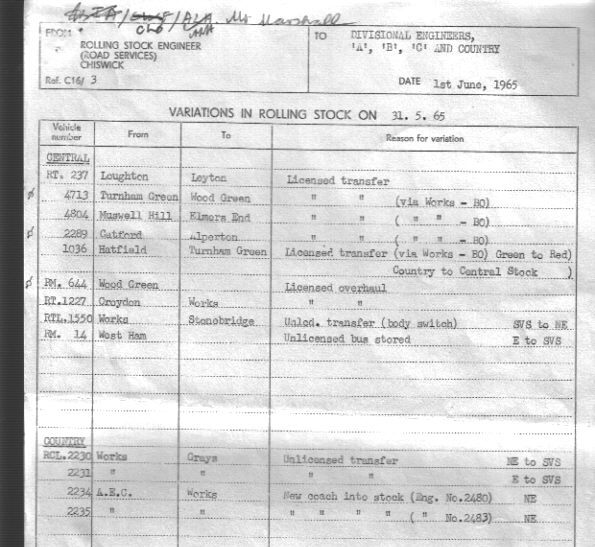 Mr Marshall
FROM
ROLLING STOCK ENGINEER
(ROAD SERVICES)
CHISWICK
Ref. C16/ 3
TO DIVISIONAL ENGINEERS,
'A', 'B', 'C' AND COUNTRY
DATE 1st June, 1965
VARIATIONS IN ROLLING STOCK ON 31. 5. 65
Vehicle number From To Reason for variation
CENTRAL
RT. 237 Loughton Leyton Licensed transfer
ø 4713 Turnham Green Wood Green " " (via Works - BO)
4804 Muswell Hill Elmers End " " ( " " - BO)
ø 2289 Catford Alperton " " ( " " - BO)
1036 Hatfield Turnham Green Licensed transfer (via Works - BO) Green to Red)
Country to Central Stock )
ø RM. 644 Wood Green Licensed overhaul
RT.1227 Croydon Works " "
RTL.1550 Works Stonebridge Unlcd. transfer (body switch) SVS to NE
RM. 14 West Ham Unlicensed bus stored E to SVS
COUNTRY
RCL.2230 Works Grays Unlicensed transfer NE to SVS
2231 " " " " E to SVS
2234 A.E.C. Works New coach into stock (Eng. No.2480) NE
2235 " " " " " " ( " No.2483) NE